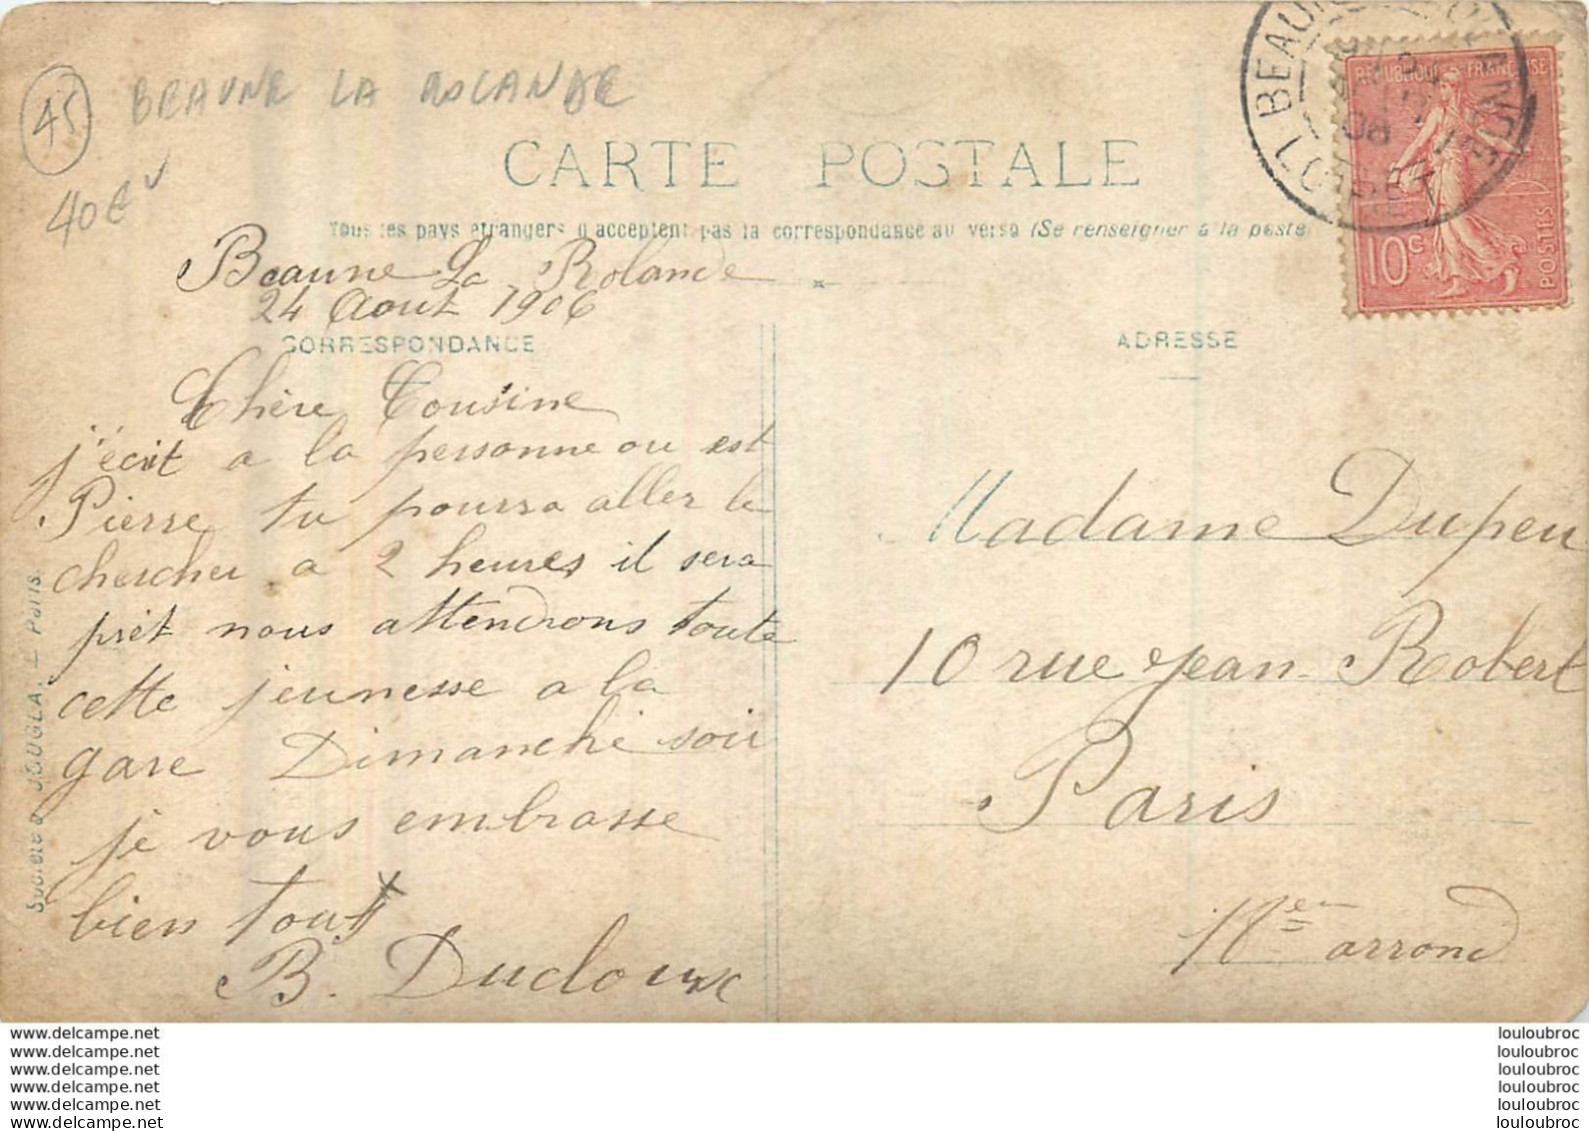 45
BEAUNE LA ROLANDE
40€
CARTE POSTALE
Tous les pays étrangers n'acceptent pas la correspondance au verso (Se renseigner à la poste
REPUBLIQUE FRANÇAISE
10c
POSTES
LOIRET
Beaune La Rolande
24 Aout 1906
CORRESPONDANCE
Chère Cousine
j'écrit a la personne ou est
Pierre tu pourra aller le
chercher a 2 heures il sera
prèt nous attendrons toute
cette jeunesse a la
gare Dimanche soir
je vous embrasse
bien tout
B. Ducloux
ADRESSE
Madame Dupeu
10 rue Jean Robert
Paris
18e arrond
Société JOUGLA. — Paris.
www.delcampe.net
www.delcampe.net
www.delcampe.net
www.delcampe.net
www.delcampe.net
www.delcampe.net
louloubroc
louloubroc
louloubroc
louloubroc
louloubroc
louloubroc